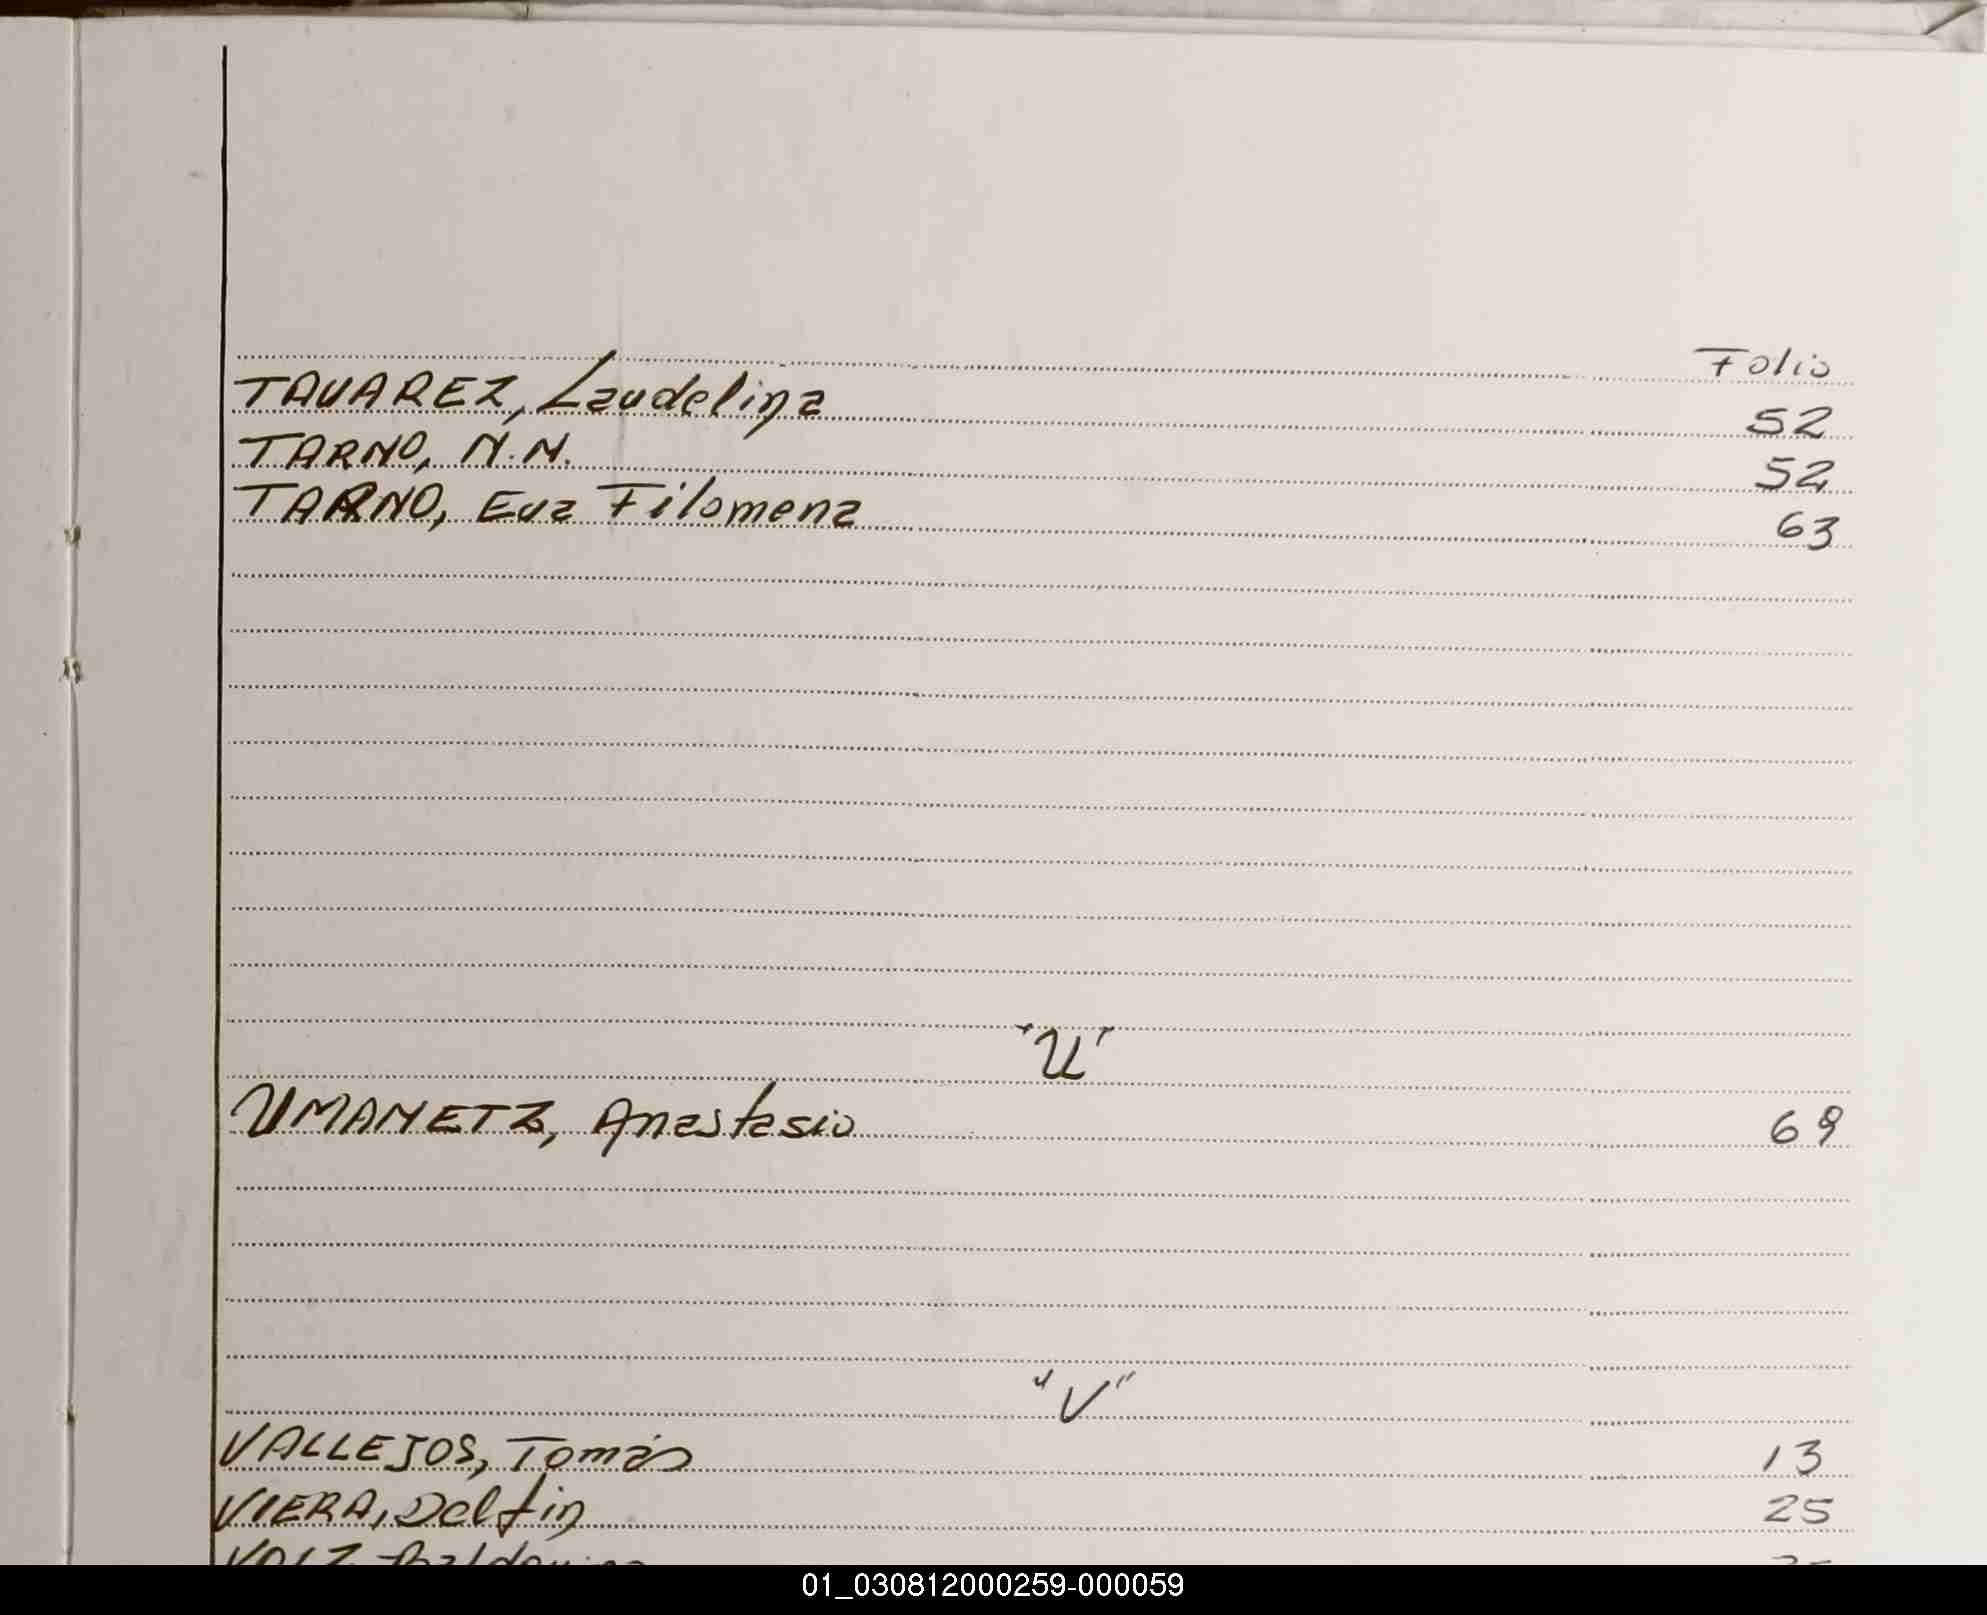 Folio
TAVAREZ, Laudelina 52
TARNO, N.N. 52
TARNO, Eva Filomena 63
"U"
UMANETZ, Anastasio 69
"V"
VALLEJOS, Tomás 13
VIERA, Delfin 25
01_030812000259-000059